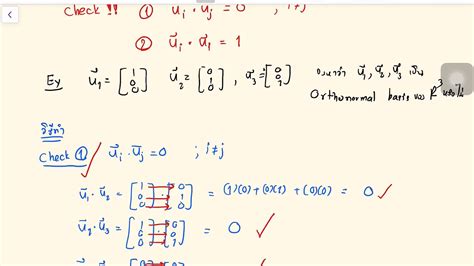 Check !! ① u⃗i · u⃗j = 0 ; i≠j
② u⃗i · u⃗i = 1
Ex u⃗1 = [1 0 0] u⃗2 = [0 1 0] , u⃗3 = [0 0 1] u⃗1, u⃗2, u⃗3 เป็น
Orthonormal basis ของ R³ หรือไม่
วิธีทำ
Check ① u⃗i · u⃗j = 0 ; i≠j
u⃗1 · u⃗2 = [1 0 0] · [0 1 0] = (1)(0) + (0)(1) + (0)(0) = 0 ✓
u⃗2 · u⃗3 = [0 1 0] · [0 0 1] = 0 ✓